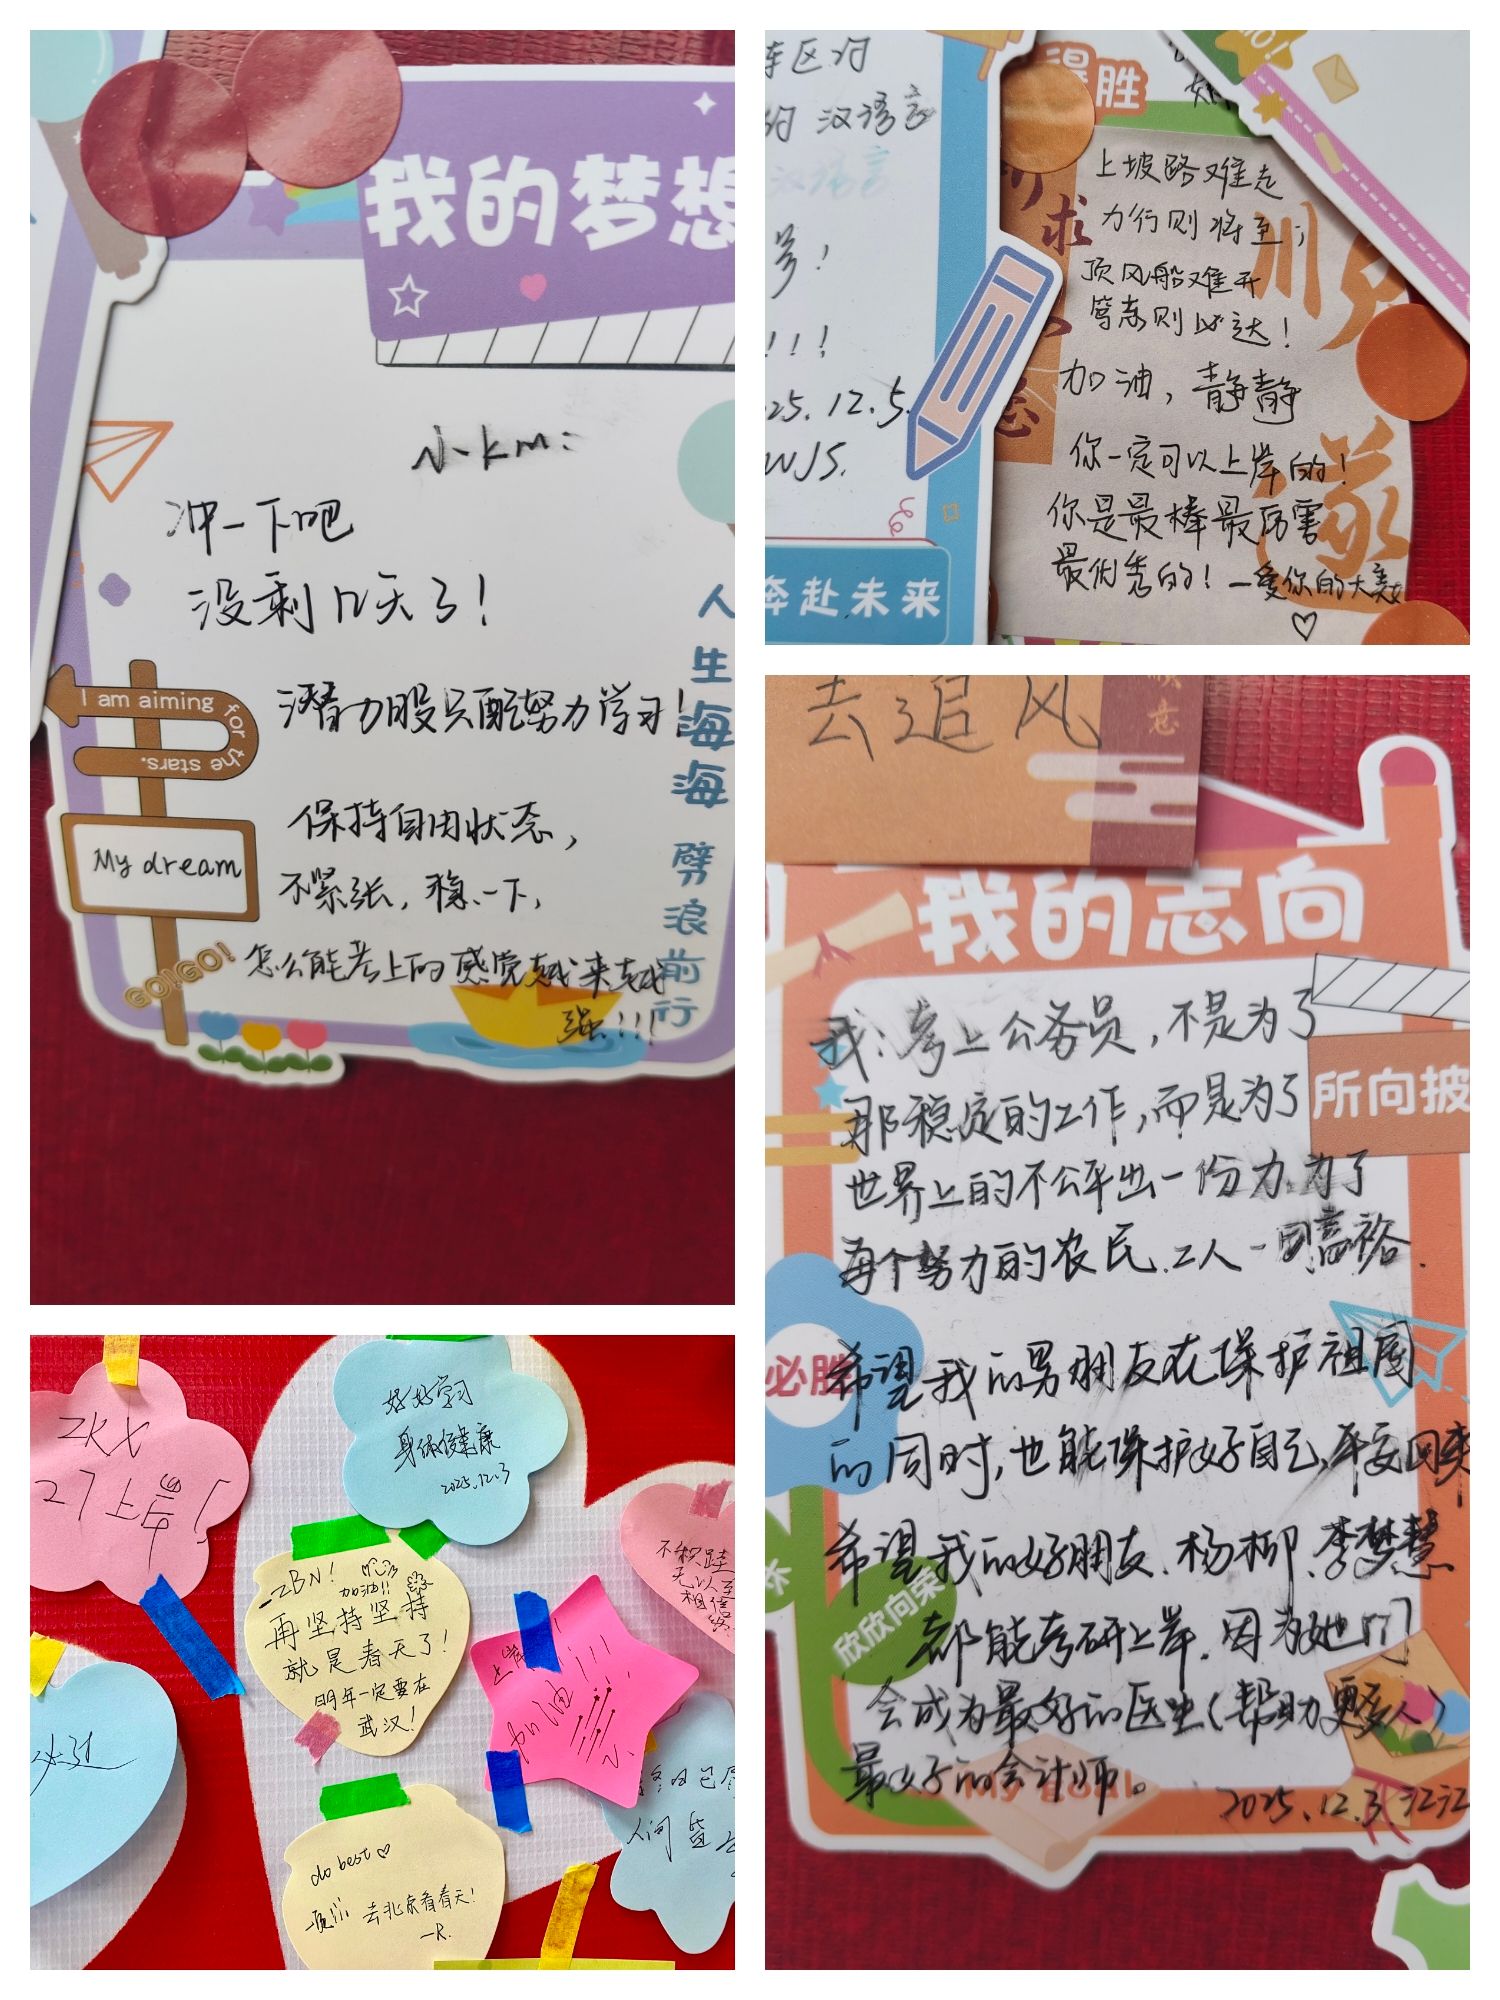 我的梦想
小km:
冲一下吧
没剩几天了!
潜力股只配努力学习!
保持自由状态,
不紧张,稳一下,
怎么能考上的感觉越来越
强!!!
I am aiming for the stars.
My dream
GO!GO!
人生海海 劈浪前行
车区的
的 汉语言
汉语言
!
!!!
25.12.5.
WJS.
奔赴未来
得胜
上坡路难走
力行则将至;
顶风船难开
笃志则必达!
加油,静静
你一定可以上岸的!
你是最棒最厉害
最优秀的!—爱你的大美女
♡
去追风
我的志向
所向披
我:考上公务员,不是为了
那稳定的工作,而是为了
世界上的不公平出一份力.为了
每个努力的农民.工人一
希望我的男朋友在保护祖国
的同时,也能保护好自己,平安回来
希望我的好朋友.杨柳.李梦慧
都能考研上岸.因为她们
会成为最好的医生(帮助更多人)
最好的会计师。
2025.12.3.江江
必胜
欣欣向荣
My goal
ZKX
27上岸!
好好学习
身体健康
2025.12.3
ZBN!
加油!!
再坚持坚持
就是春天了!
明年一定要在
武汉!
上岸!
加油!!!
不积跬
无以至
相信
必过
人间皆
do best ♡
去北京看春天!
—R.